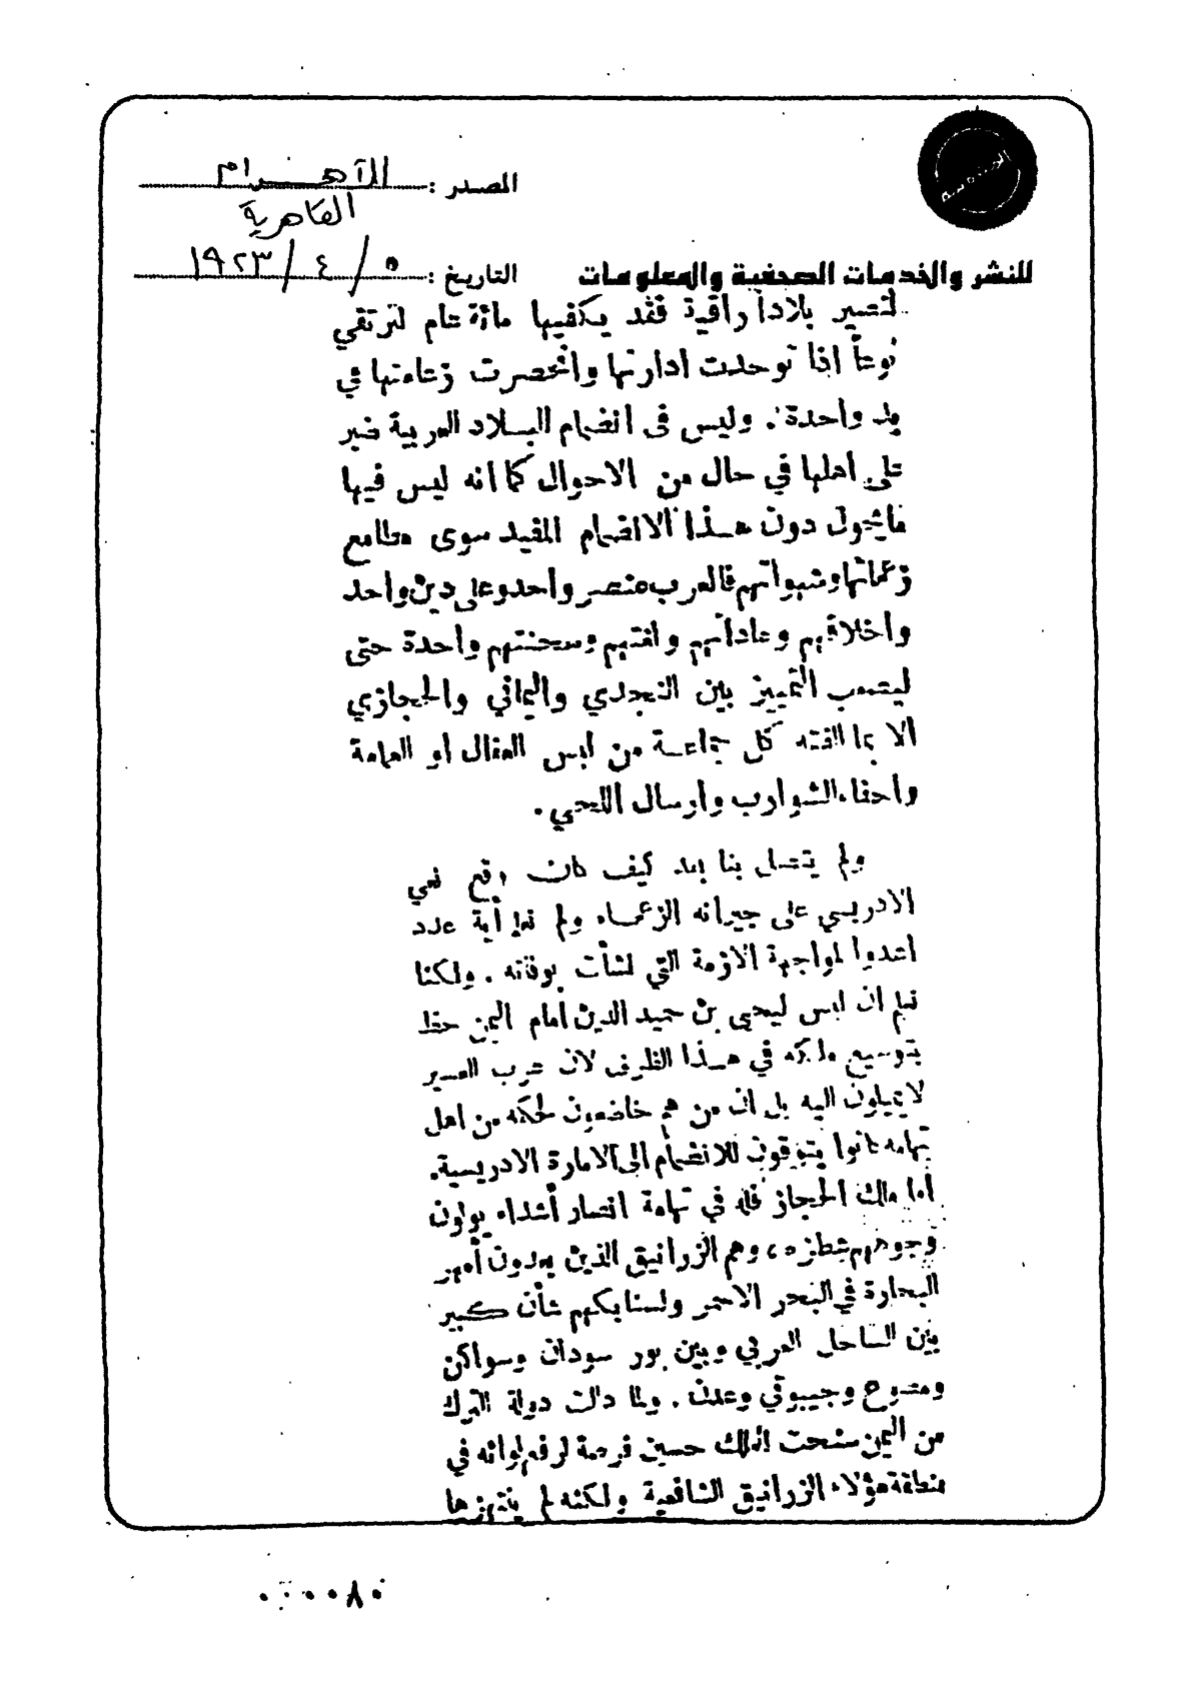 المصدر : الآهرام
القاهرية
للنشر والخدمات الصحفية والمعلومات التاريخ : ٥ / ٤ / ١٩٢٣
لتصير بلاداً راقية فقد يكفيها مائة عام لترتقي
نوعاً اذا توحدت ادارتها وانحصرت زعامتها في
يد واحدة . وليس فى انضمام البلاد العربية ضير
على اهلها في حال من الاحوال كما انه ليس فيها
مايحول دون هذا الانضمام المفيد سوى مطامع
زعمائها وشهواتهم فالعرب عنصر واحد وعلى دين واحد
واخلاقهم وعاداتهم ولغتهم وسحنتهم واحدة حتى
ليتعب التمييز بين النجدي واليماني والحجازي
الا بما الفته كل جماعة من لبس العقال او العمامة
واحفاء الشوارب وارسال اللحي .
ولم يتصل بنا بعد كيف كان وقع نعي
الادريسي على جيرانه الزعماء ولم نعلم أية عدد
اعدوا لمواجهة الازمة التي نشأت بوفاته . ولكنا
نعلم ان ليس ليحيى بن حميد الدين امام اليمن حظ
بتوسيع ملكه في هذا الظرف لان عرب العسير
لا يميلون اليه بل ان من هم خاضعون لحكمه من اهل
تهامه كانوا يتوقون للانضمام الى الامارة الادريسية .
أما ملك الحجاز فله في تهامة انصار أشداء يولون
وجوههم شطره ، وهم الزرانيق الذين يعدون أمهر
البحارة في البحر الاحمر ولسنابكهم شأن كبير
بين الساحل العربي وبين بور سودان وسواكن
ومصوع وجيبوتي وعدن . ولما دالت دولة الترك
من اليمن سنحت للملك حسين فرصة لرفع لوائه في
منطقة هؤلاء الزرانيق الشافعية ولكنه لم ينتهزها